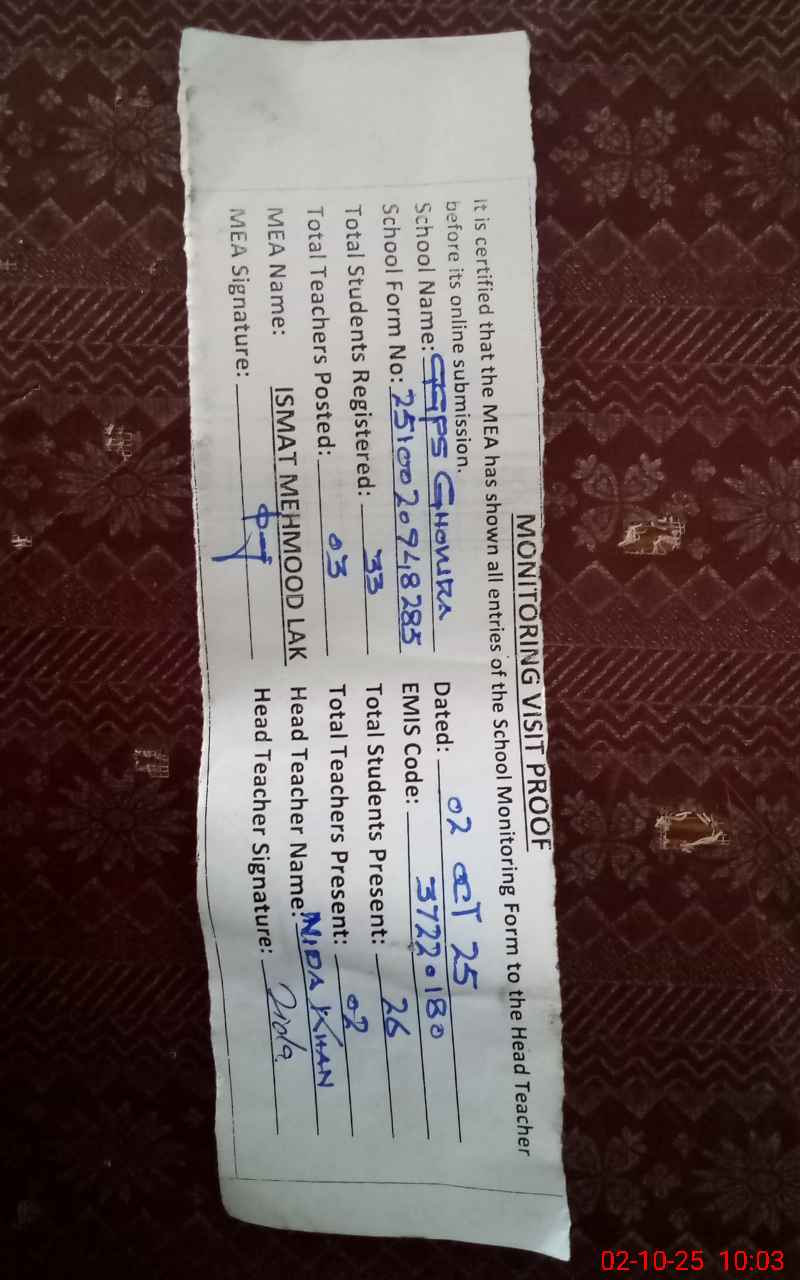 MONITORING VISIT PROOF
It is certified that the MEA has shown all entries of the School Monitoring Form to the Head Teacher
before its online submission.
School Name: GGPS GHOWKA Dated: 02 OCT 25
School Form No: 2510020948285 EMIS Code: 37220180
Total Students Registered: 33 Total Students Present: 26
Total Teachers Posted: 03 Total Teachers Present: 02
MEA Name: ISMAT MEHMOOD LAK Head Teacher Name: NIDA KHAN
MEA Signature: Head Teacher Signature: Nida
02-10-25 10:03